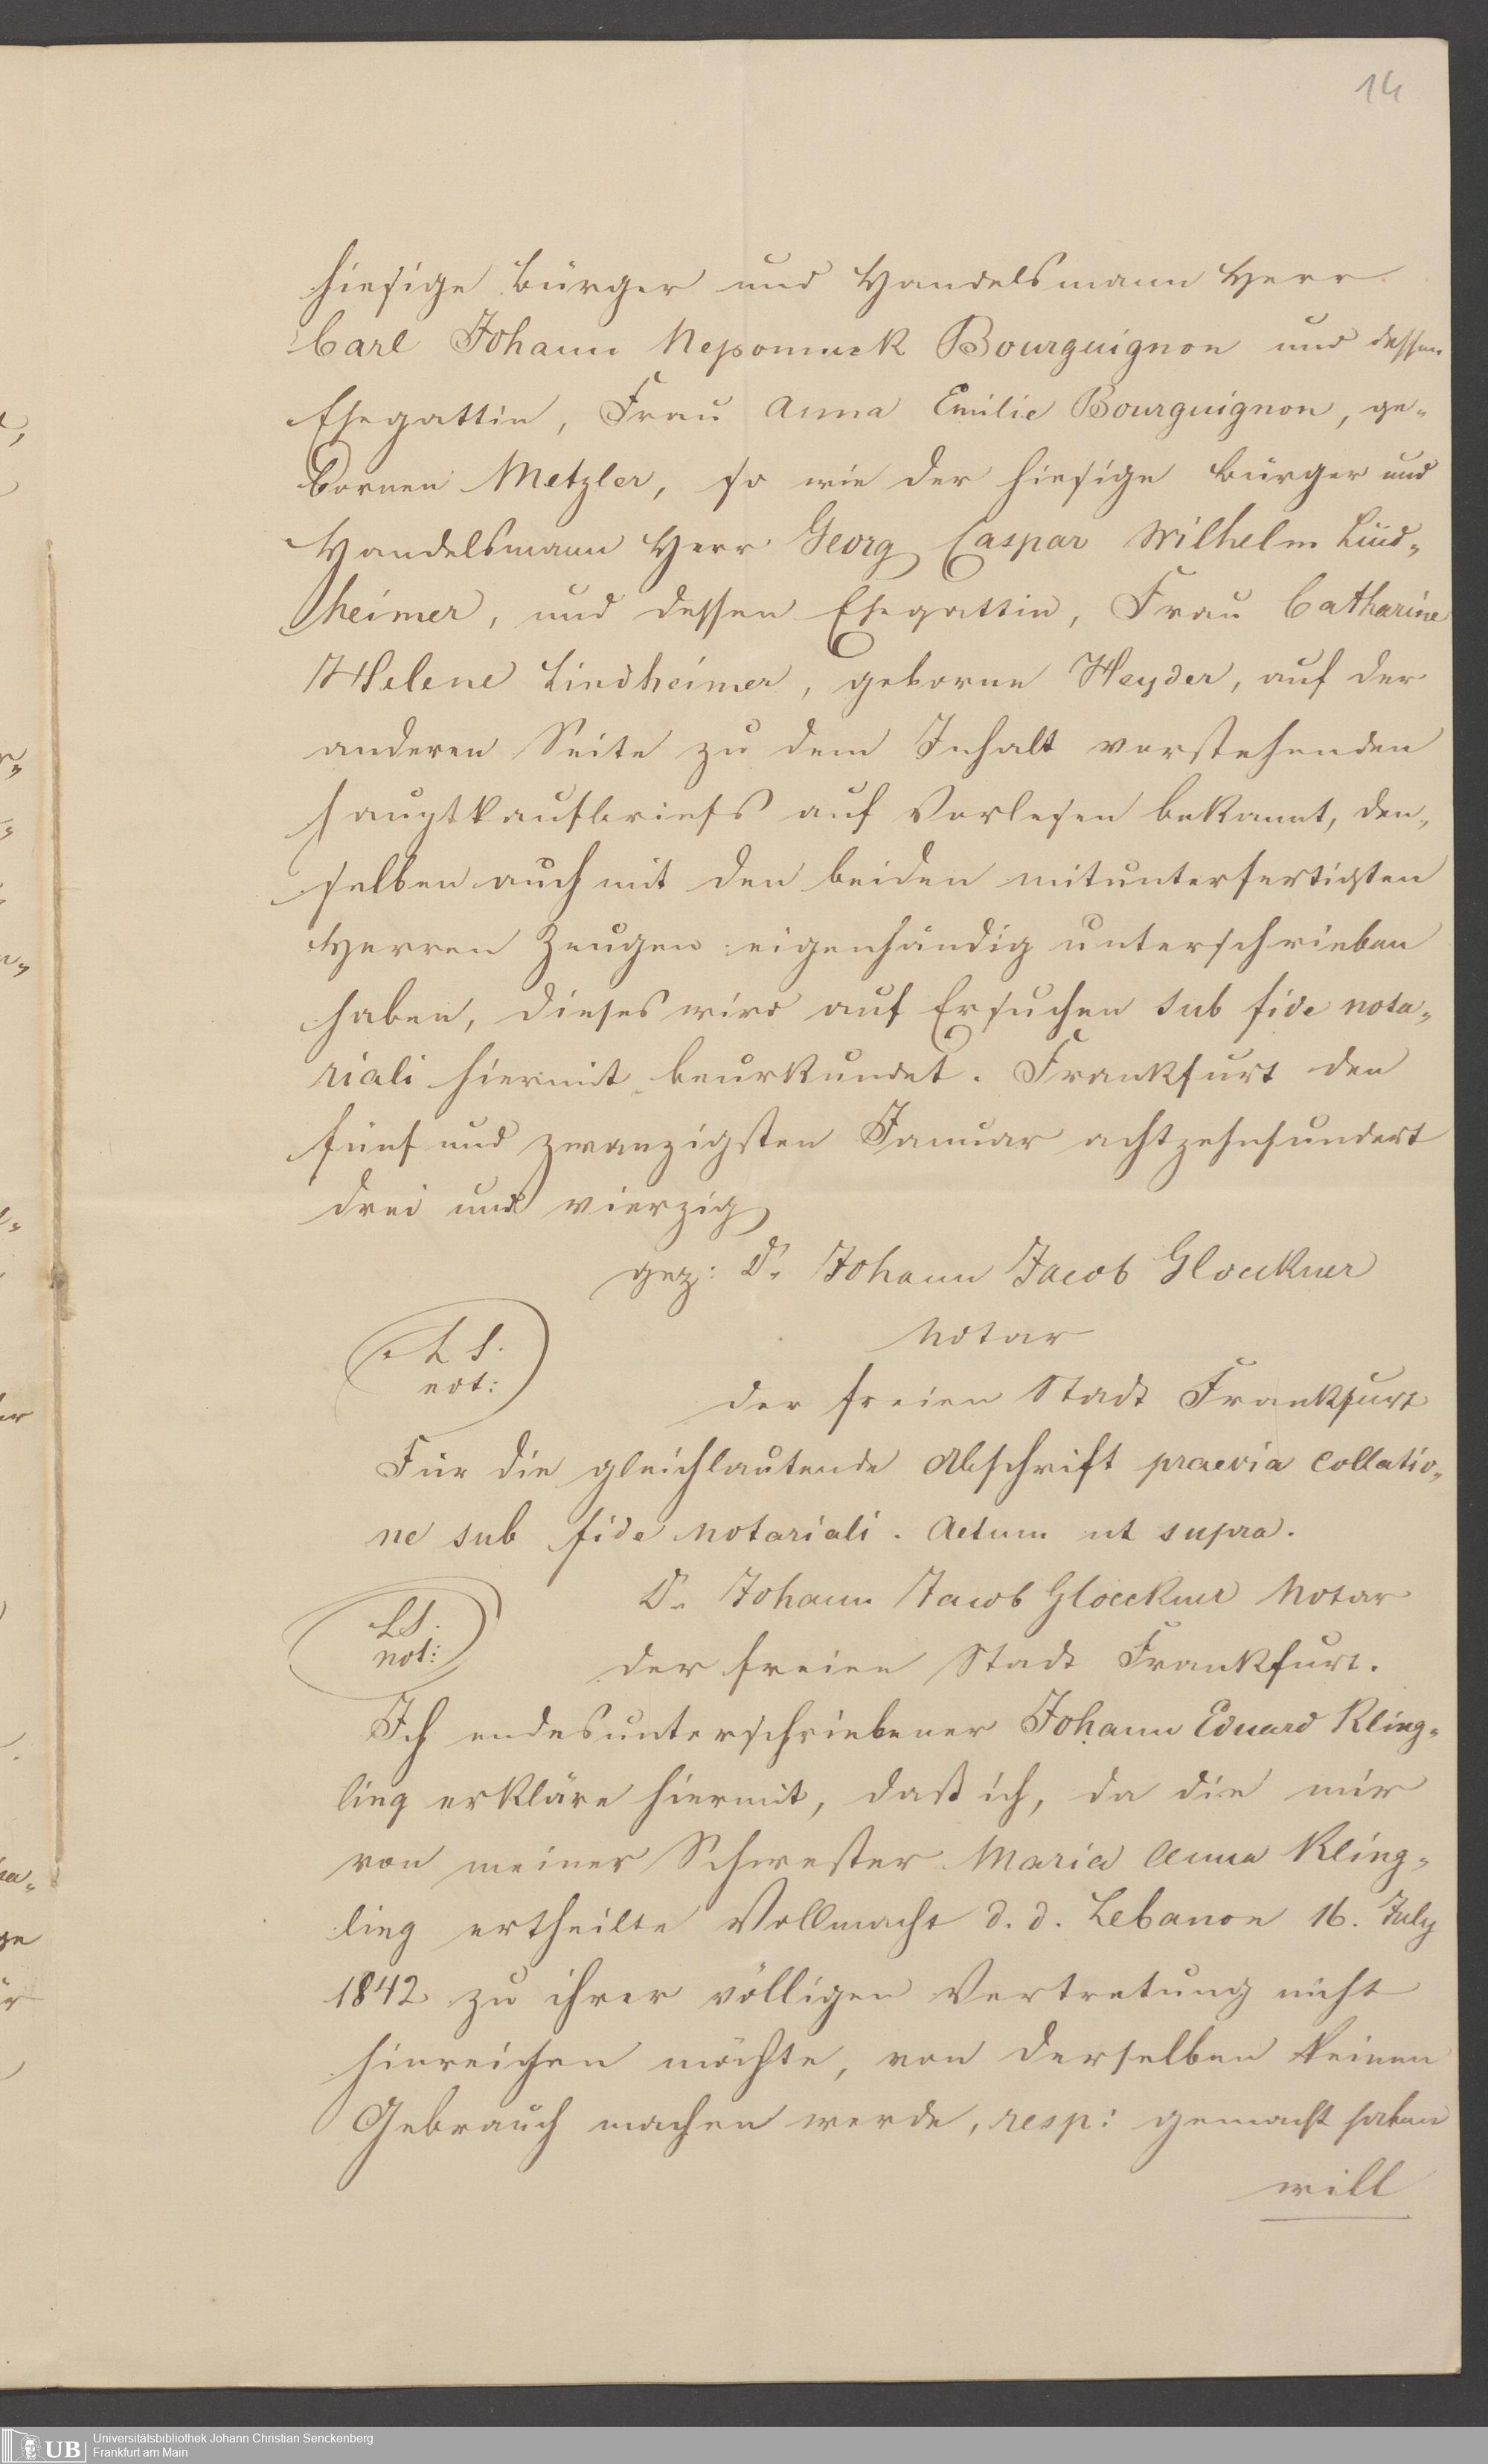 14
hiesige Bürger und Handelsmann Herr
Carl Johann Nepomuck Bourguignon und dessen
Ehegattin, Frau Anna Emilie Bourguignon, ge-
bornen Metzler, so wie der hiesige Bürger und
Handelsmann Herr Georg Caspar Wilhelm Lind-
heimer, und dessen Ehegattin, Frau Catharine
Helene Lindheimer, geborne Heyder, auf der
anderen Seite zu dem Inhalt vorstehenden
Hauptkaufbriefs auf Vorlesen bekannt, den-
selben auch mit den beiden mitunterfertigten
Herren Zeugen eigenhändig unterschrieben
haben, dieses wird auf Ersuchen sub fide nota-
riali hiermit beurkundet. Frankfurt den
fünf und zwanzigsten Januar achtzehnhundert
drei und vierzig
gez: Dr. Johann Jacob Gloeckner
L S.
not:
Notar
der freien Stadt Frankfurt
Für die gleichlautende Abschrift praevia collatio-
ne sub fide notariali. Actum ut supra.
Dr. Johann Jacob Gloeckner Notar
LS.
not:
der freien Stadt Frankfurt.
Ich endesunterschriebener Johann Eduard Kling-
ling erkläre hiermit, daß ich, da die mir
von meiner Schwester Maria Anna Kling-
ling ertheilte Vollmacht d. d. Lebanon 16. July
1842 zu ihrer völligen Vertretung nicht
hinreichen möchte, von derselben keinen
Gebrauch machen werde, resp: gemacht haben
will
UB
Universitätsbibliothek Johann Christian Senckenberg
Frankfurt am Main